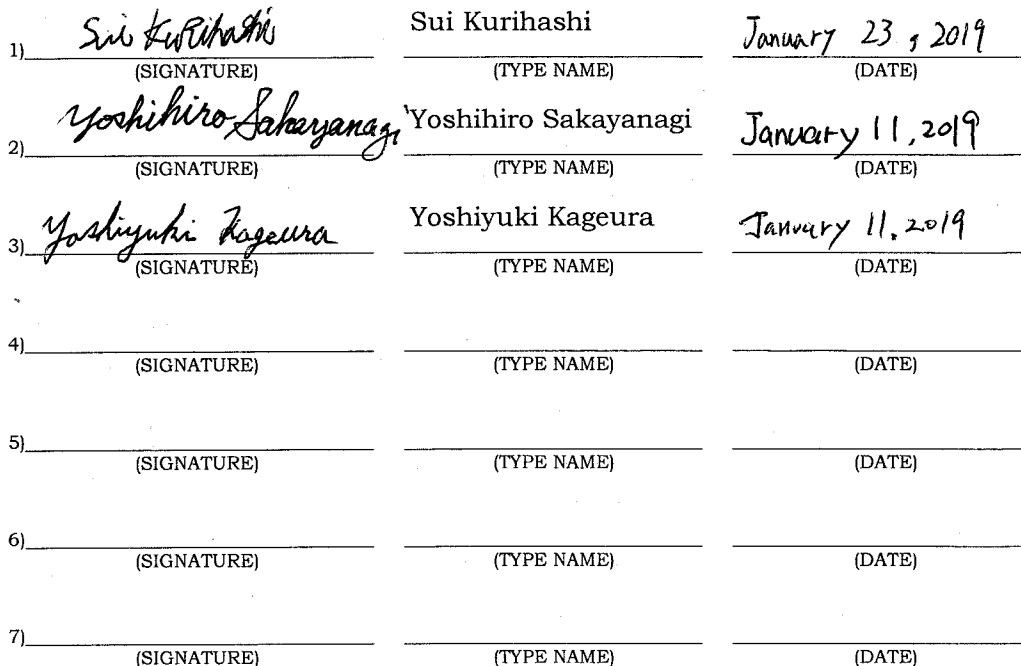 Sui Kurihashi Sui Kurihashi January 23, 2019
1)
(SIGNATURE) (TYPE NAME) (DATE)
Yoshihiro Sakayanagi Yoshihiro Sakayanagi January 11, 2019
2)
(SIGNATURE) (TYPE NAME) (DATE)
Yoshiyuki Kageura Yoshiyuki Kageura January 11, 2019
3)
(SIGNATURE) (TYPE NAME) (DATE)
4)
(SIGNATURE) (TYPE NAME) (DATE)
5)
(SIGNATURE) (TYPE NAME) (DATE)
6)
(SIGNATURE) (TYPE NAME) (DATE)
7)
(SIGNATURE) (TYPE NAME) (DATE)